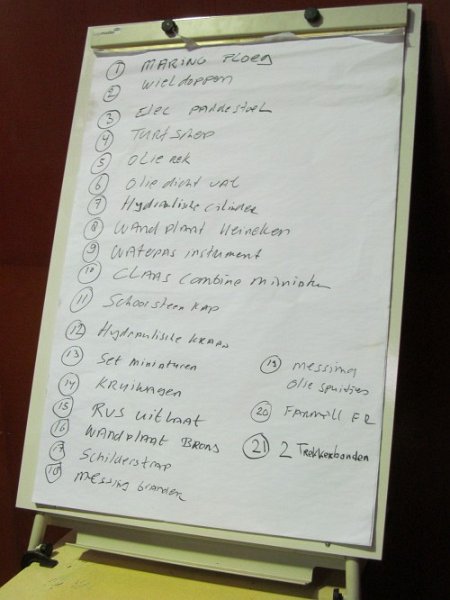 1 MARING PLOEG
2 Wieldoppen
3 Elec paddestoel
4 Turfschop
5 Olie rek
6 Olie dicht vat
7 Hydraulische cilinder
8 Wandplaat Heineken
9 Waterpas instument
10 CLAAS Combine miniatuur
11 Schoorsteen kap
12 Hydraulische kraan
13 Set miniaturen
14 Kruiwagen
15 RVS uitlaat
16 Wandplaat Brons
17 Schilderstrap
18 messing branden
19 messing
olie spuitjes
20 Farmall F12
21 2 Trekkerbanden